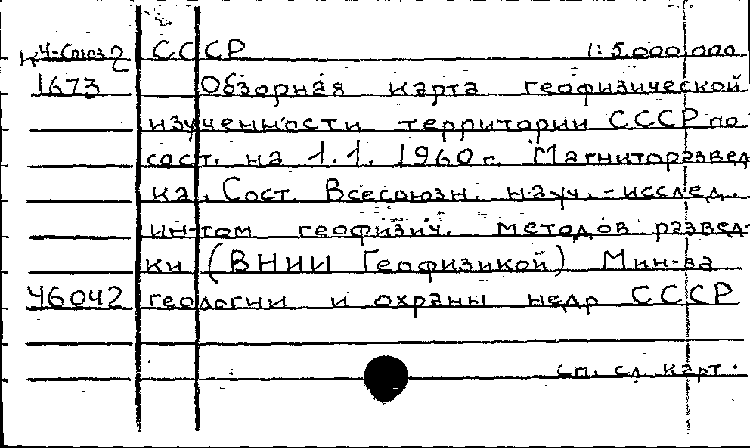 К4-Союз2 СССР 1:5.000.000
1673 Обзорная карта геофизической
изученности территории СССР по
сост. на 1.1. 1960г. Магниторазвед
ка. Сост. Всесоюзн. науч.-исслед.
ин-том геофизич. методов развед-
ки (ВНИИ Геофизикой) Мин-ва
46042 геологии и охраны недр СССР
см. сл. карт.